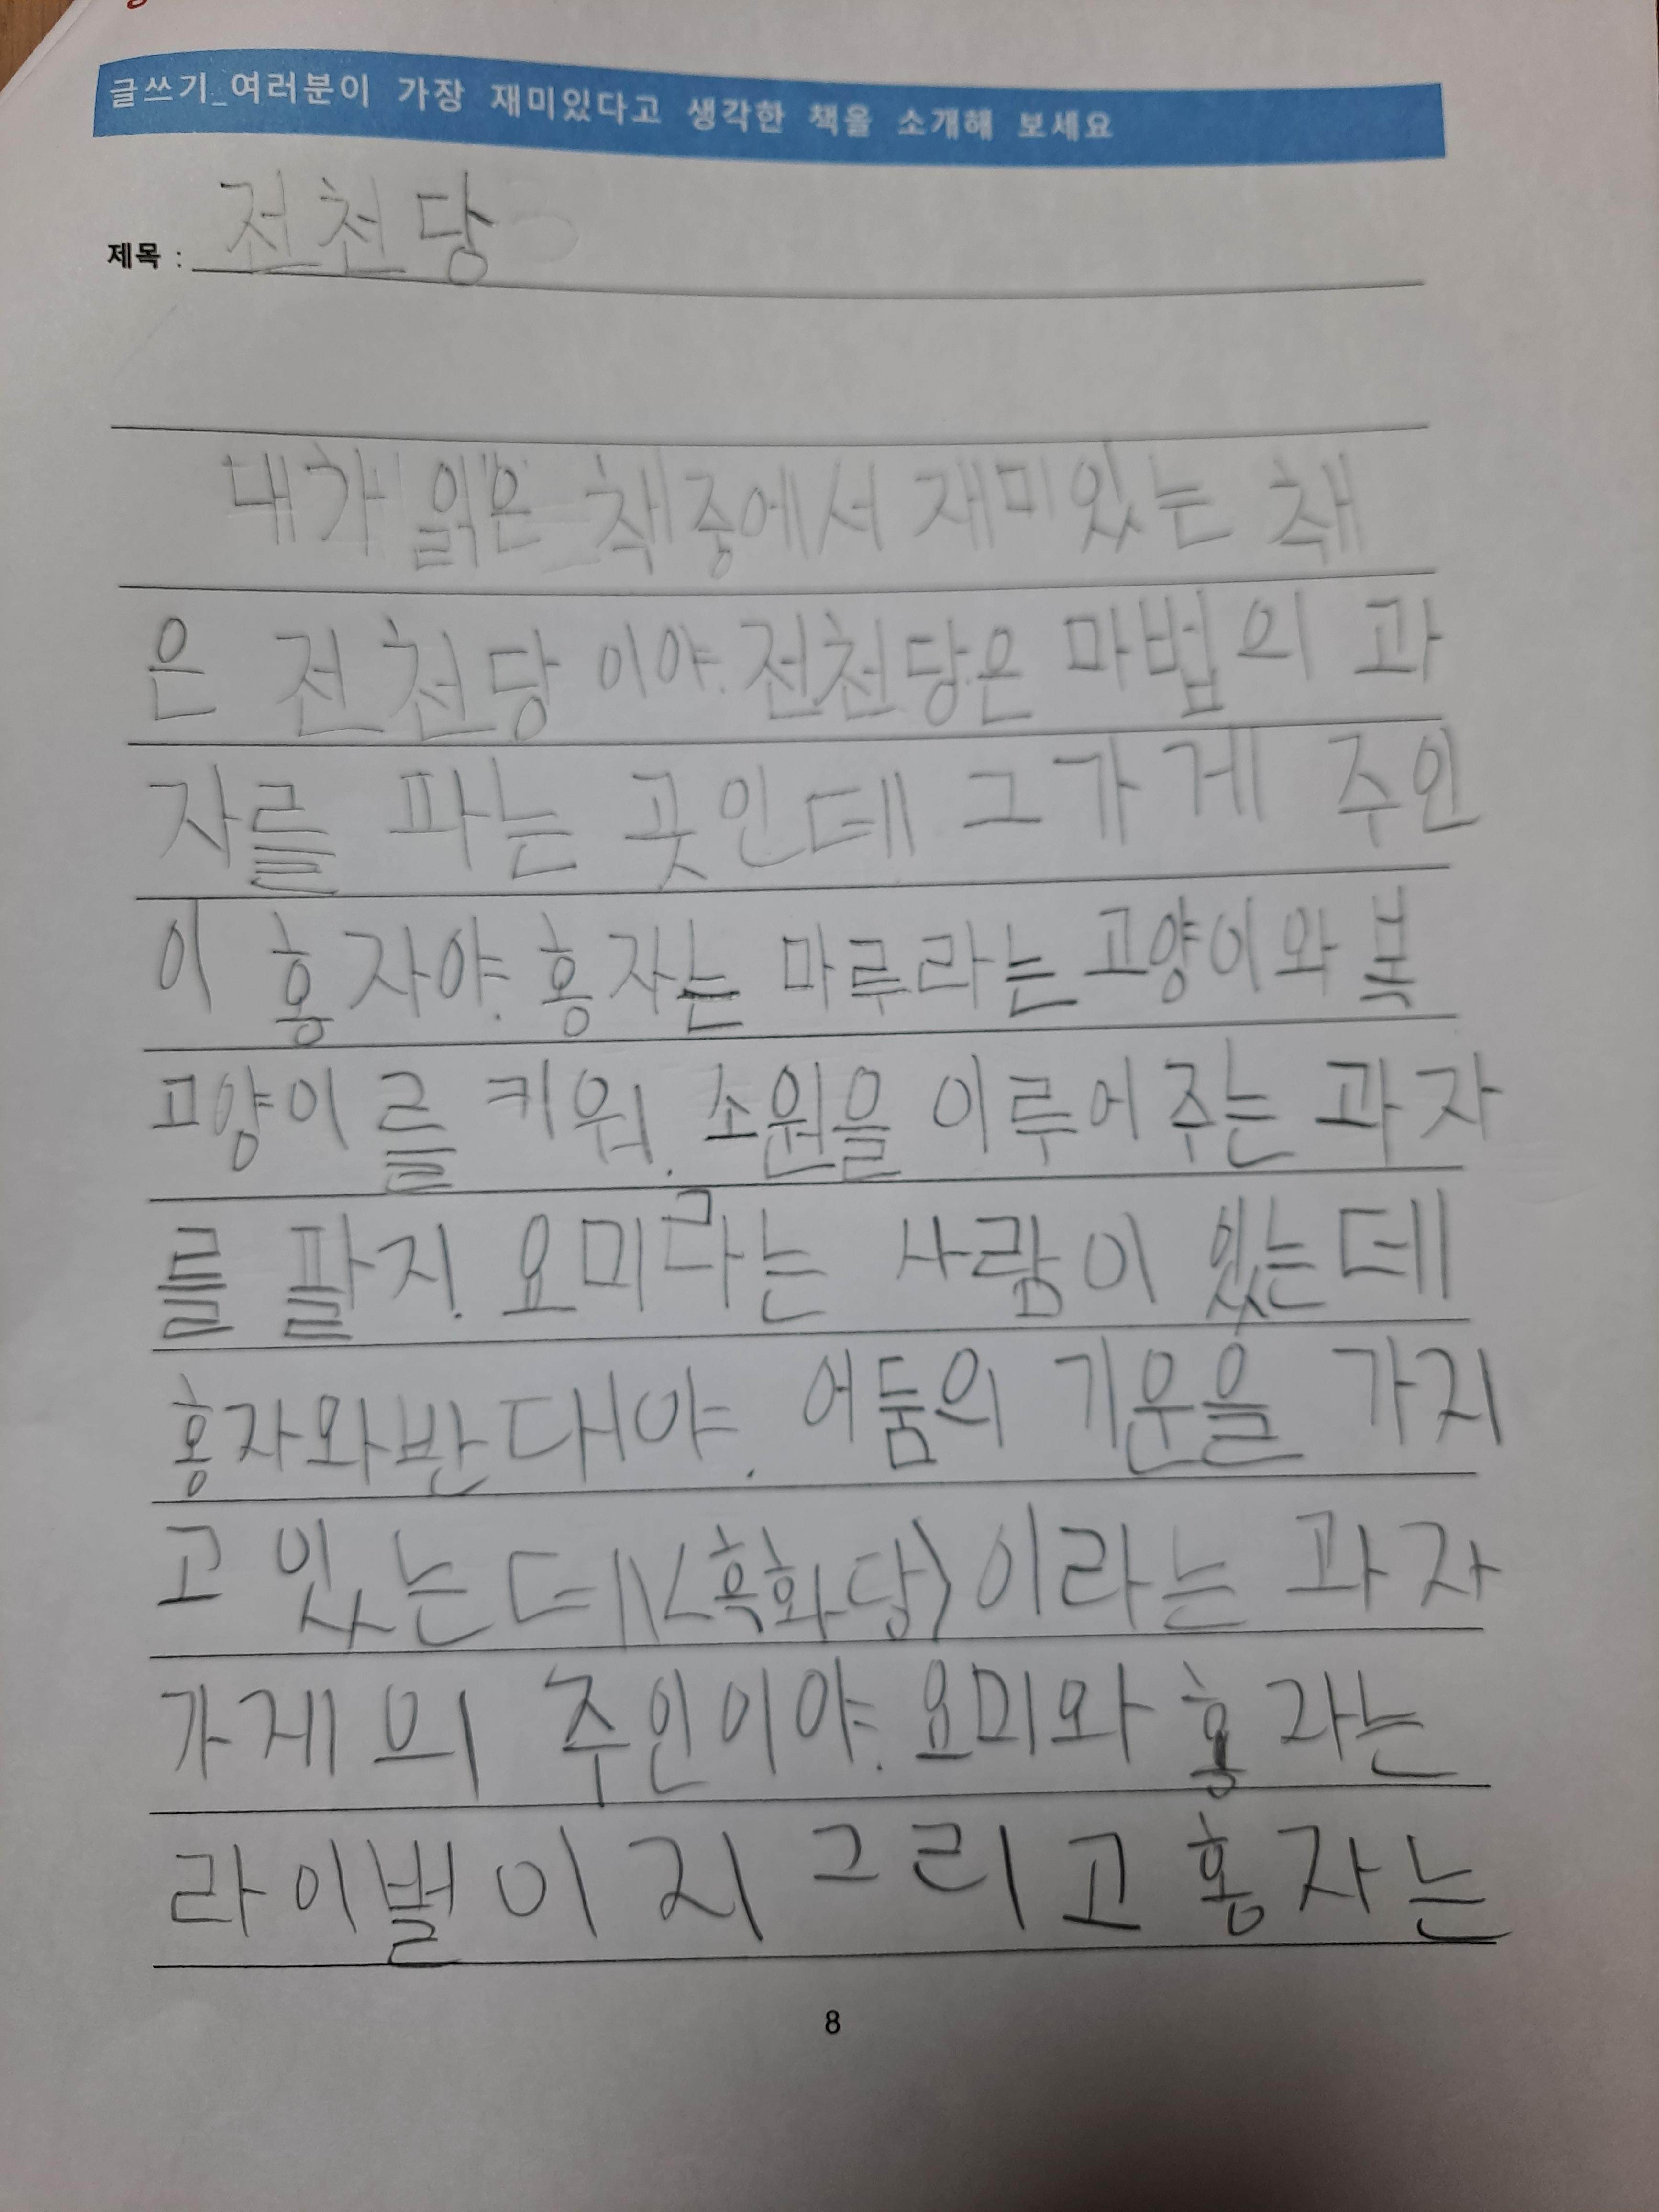 글쓰기_여러분이 가장 재미있다고 생각한 책을 소개해 보세요
제목 : 전천당
내가 읽은 책중에서 재미있는 책
은 전천당 이야. 전천당은 마법의 과
자를 파는 곳인데 그가게 주인
이 홍자야. 홍자는 마루라는 고양이와 복
고양이를 키워. 소원을 이루어 주는 과자
를 팔지. 요미라는 사람이 있는데
홍자와반대야. 어둠의 기운을 가지
고 있는데 <흑화당>이라는 과자
가게의 주인이야. 요미와 홍자는
라이벌이지 그리고 홍자는
8